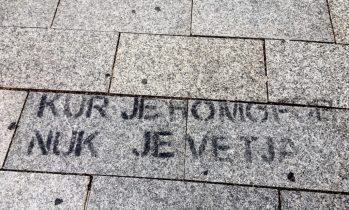 KUR JE HOMOFOB
NUK JE VETJA